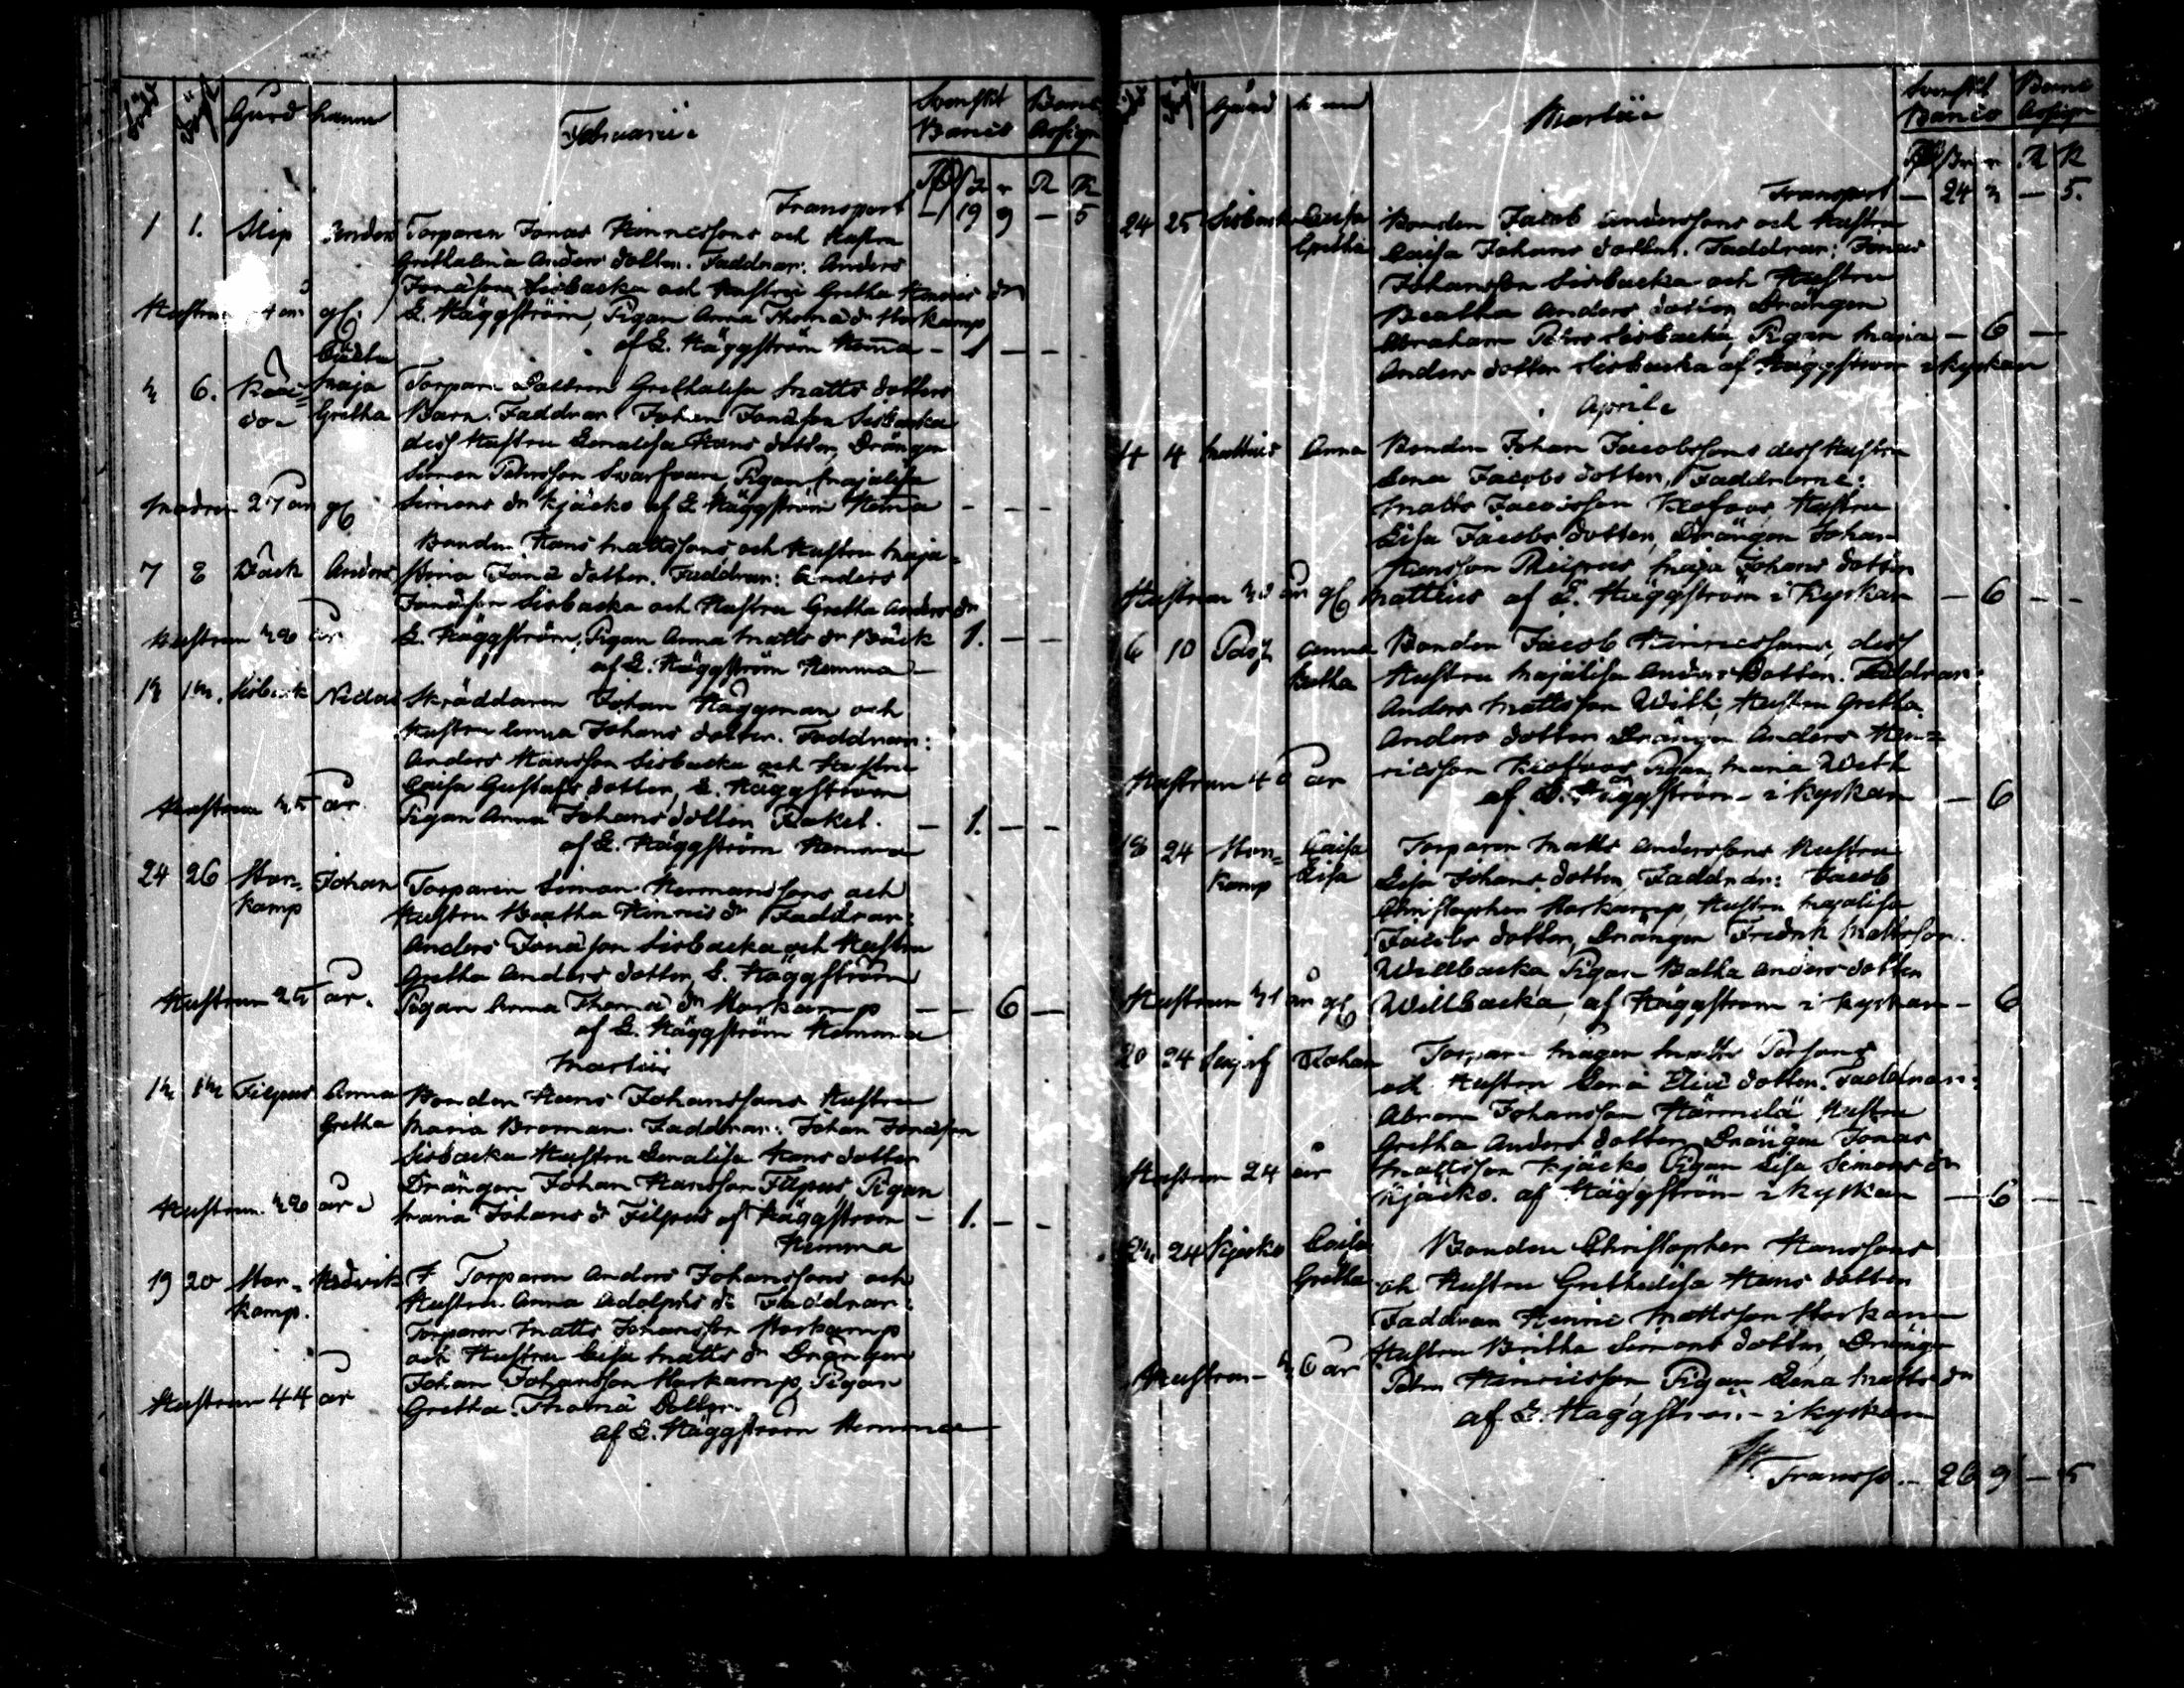 född döpt Gård namn Februarii Svenskt Banco Banco Assign
Transport - 19 9 - 5
1 1. Slip Anders Torparen Jonas Hinricssons och Hustru
Grethalena Anders dotter. Faddrar: Anders
Jonasson Sisbacka och Hustru Gretha Hinrics dr
Hustrun gl. E. Häggström, Pigan Anna Thomæ dr Storkamp
af E. Häggström Hemma - 1 - -
6. Maja Gretha Torpare Dottren Grethalisa Matts dotters
Barn. Faddrar Johan Jonasson Sisbacka
dess Hustru Lenalisa Hans dotter, Drängen
Simon Pehrsson Svarfvare, Pigan Majalisa
Modren 27 år gl Simons dr Kjäcko af E Häggström Hemma - - -
Bonden Hans Mattssons och Hustru Maja
7 8 Bäck Anders Stina Jona dotter. Faddrar: Anders
Jonasson Sisbacka och Hustru Gretha Anders dr
Hustrun år E. Häggström, Pigan Anna Matts dr Bäck 1. - -
af E. Häggström Hemma -
Sisback Niclas Skräddaren Johan Häggman och
Hustru Anna Johans dotter. Faddrar:
Anders Hansson Sisbacka och Hustru
Caisa Gustafs dotter, E. Häggström
Hustrun år. Pigan Anna Johans dotter Rakel. - 1. - -
af E. Häggström Hemma
24 26 Stor= kamp Johan Torparen Simon Hermanssons och
Hustru Beatha Hinrics dr Faddrar:
Anders Jonasson Sisbacka och Hustru
Gretha Anders dotter, E. Häggström
Hustrun år. Pigan Anna Thomæ dr Storkamp - - 6 -
af E. Häggström Hemma
Martii
Filpus Anna Gretha Bonden Hans Johanssons Hustru
Maria Broman. Faddrar: Johan Jonasson
Sisbacka Hustru Lenalisa Hans dotter
Drängen Johan Hansson Filpus Pigan
Hustrun år Maria Johans dr Filpus af Häggström - 1. - -
Hemma
19 20 Stor- kamp. Hedvik Torparen Anders Johanssons och
Hustru Anna Adolphs dr Faddrar:
Torparen Matts Johansson Storkamp
och Hustru Lisa Matts dr Drängen
Johan Johansson Storkamp, Pigan
Hustrun 44 år Gretha Thomæ Dotter.
af E. Häggström Hemma
Gård namn Martii Svenskt Banco Banco Assign
Transport - 24 - 5.
24 25 Sisback Caisa Gretha Bonden Jacob Anderssons och Hustru
Caisa Johans dotter. Faddrar: Jonas
Johansson Sisbacka och Hustru
Beatha Anders dotter Drängen
Abraham Pehrs Sisbacka, Pigan Maria - 6 -
Anders dotter Sisbacka af Häggström i kyrkan
Aprile
4 Mattus Anna Bonden Johan Jacobssons dess Hustru
Lena Jacobs dotter, Faddrarne:
Matts Jacobsson Hustru
Lisa Jacobs dotter, Drängen Johan
Hansson Maja Johans dotter
Hustrun år gl Mattus af E. Häggström i Kyrkan - 6 - -
6 10 Anna Beatha Bonden Jacob Hinricssons, dess
Hustru Majalisa Anders Dotter. Faddrar:
Anders Mattsson With, Hustru Gretha
Anders dotter Drängen Anders Hen=
Hustrun 40 år ricsson Pigan Maria With
af E. Häggström - i kyrkan - 6
18 24 Stor= kamp Caisa Lisa Torparen Matts Anderssons Hustru
Lisa Johans dotter, Faddrar: Jacob
Christopher Storkamp, Hustru Majalisa
Jacobs dotter, Drängen Fredrik Mattsson.
Willbacka Pigan Beatha Anders dotter
Hustrun år gl Willbacka, af Häggström i kyrkan - 6
20 24 Johan Torpare Mågen Matts Persons
och Hustru Lena Elias dotter. Faddrar:
Abram Johansson Härmälä Hustru
Gretha Anders dotter Drängen Jonas
Hustrun 24 år Mattsson Kjäcko Pigan Lisa Simons dr
Kjäcko. af Häggström i kyrkan - 6 - -
24 Kjäcko Caisa Gretha Bonden Christopher Hanssons
och Hustru Grethalisa Hans dotter
Faddrar Hinric Mattsson Storkamp
Hustru Britha Simons dotter, Drängen
Hustrun år Pehr Hinricsson Pigan Lena Matts dr
af E. Häggström - i kyrkan
Transp. - 26 9 - 5